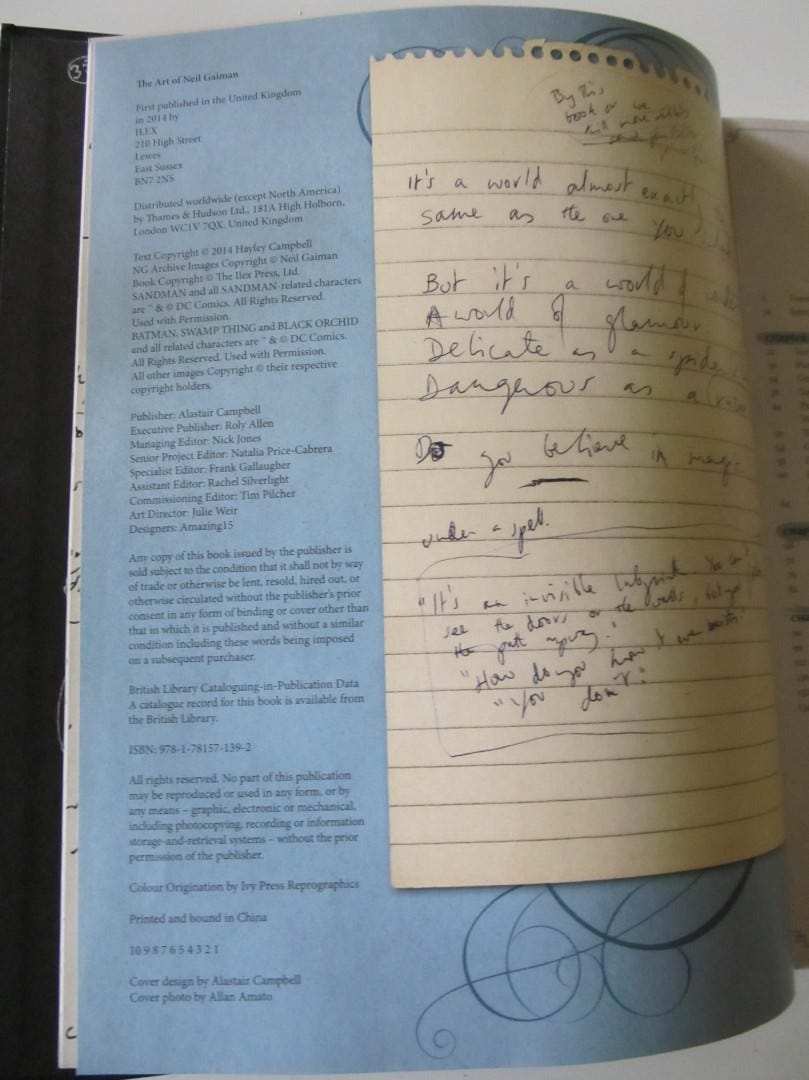 The Art of Neil Gaiman
First published in the United Kingdom
in 2014 by
ILEX
210 High Street
Lewes
East Sussex
BN7 2NS
Distributed worldwide (except North America)
by Thames & Hudson Ltd., 181A High Holborn,
London WC1V 7QX, United Kingdom
Text Copyright © 2014 Hayley Campbell
NG Archive Images Copyright © Neil Gaiman
Book Copyright © The Ilex Press, Ltd.
SANDMAN and all SANDMAN-related characters
are ™ & © DC Comics. All Rights Reserved.
Used with Permission.
BATMAN, SWAMP THING and BLACK ORCHID
and all related characters are ™ & © DC Comics.
All Rights Reserved. Used with Permission.
All other images Copyright © their respective
copyright holders.
Publisher: Alastair Campbell
Executive Publisher: Roly Allen
Managing Editor: Nick Jones
Senior Project Editor: Natalia Price-Cabrera
Specialist Editor: Frank Gallaugher
Assistant Editor: Rachel Silverlight
Commissioning Editor: Tim Pilcher
Art Director: Julie Weir
Designers: Amazing15
Any copy of this book issued by the publisher is
sold subject to the condition that it shall not by way
of trade or otherwise be lent, resold, hired out, or
otherwise circulated without the publisher's prior
consent in any form of binding or cover other than
that in which it is published and without a similar
condition including these words being imposed
on a subsequent purchaser.
British Library Cataloguing-in-Publication Data
A catalogue record for this book is available from
the British Library.
ISBN: 978-1-78157-139-2
All rights reserved. No part of this publication
may be reproduced or used in any form, or by
any means – graphic, electronic or mechanical,
including photocopying, recording or information
storage-and-retrieval systems – without the prior
permission of the publisher.
Colour Origination by Ivy Press Reprographics
Printed and bound in China
10 9 8 7 6 5 4 3 2 1
Cover design by Alastair Campbell
Cover photo by Allan Amato
By This
book or we
will
It's a world almost exactl
same as the one you
But it's a world of
A world of glamour
Delicate as a spider
Dangerous as a
Do you believe in magic
under a spell.
"It's an invisible labyrinth. You can't
see the doors or the walls, but
the path anyway."
"How do you know it
"You don't."